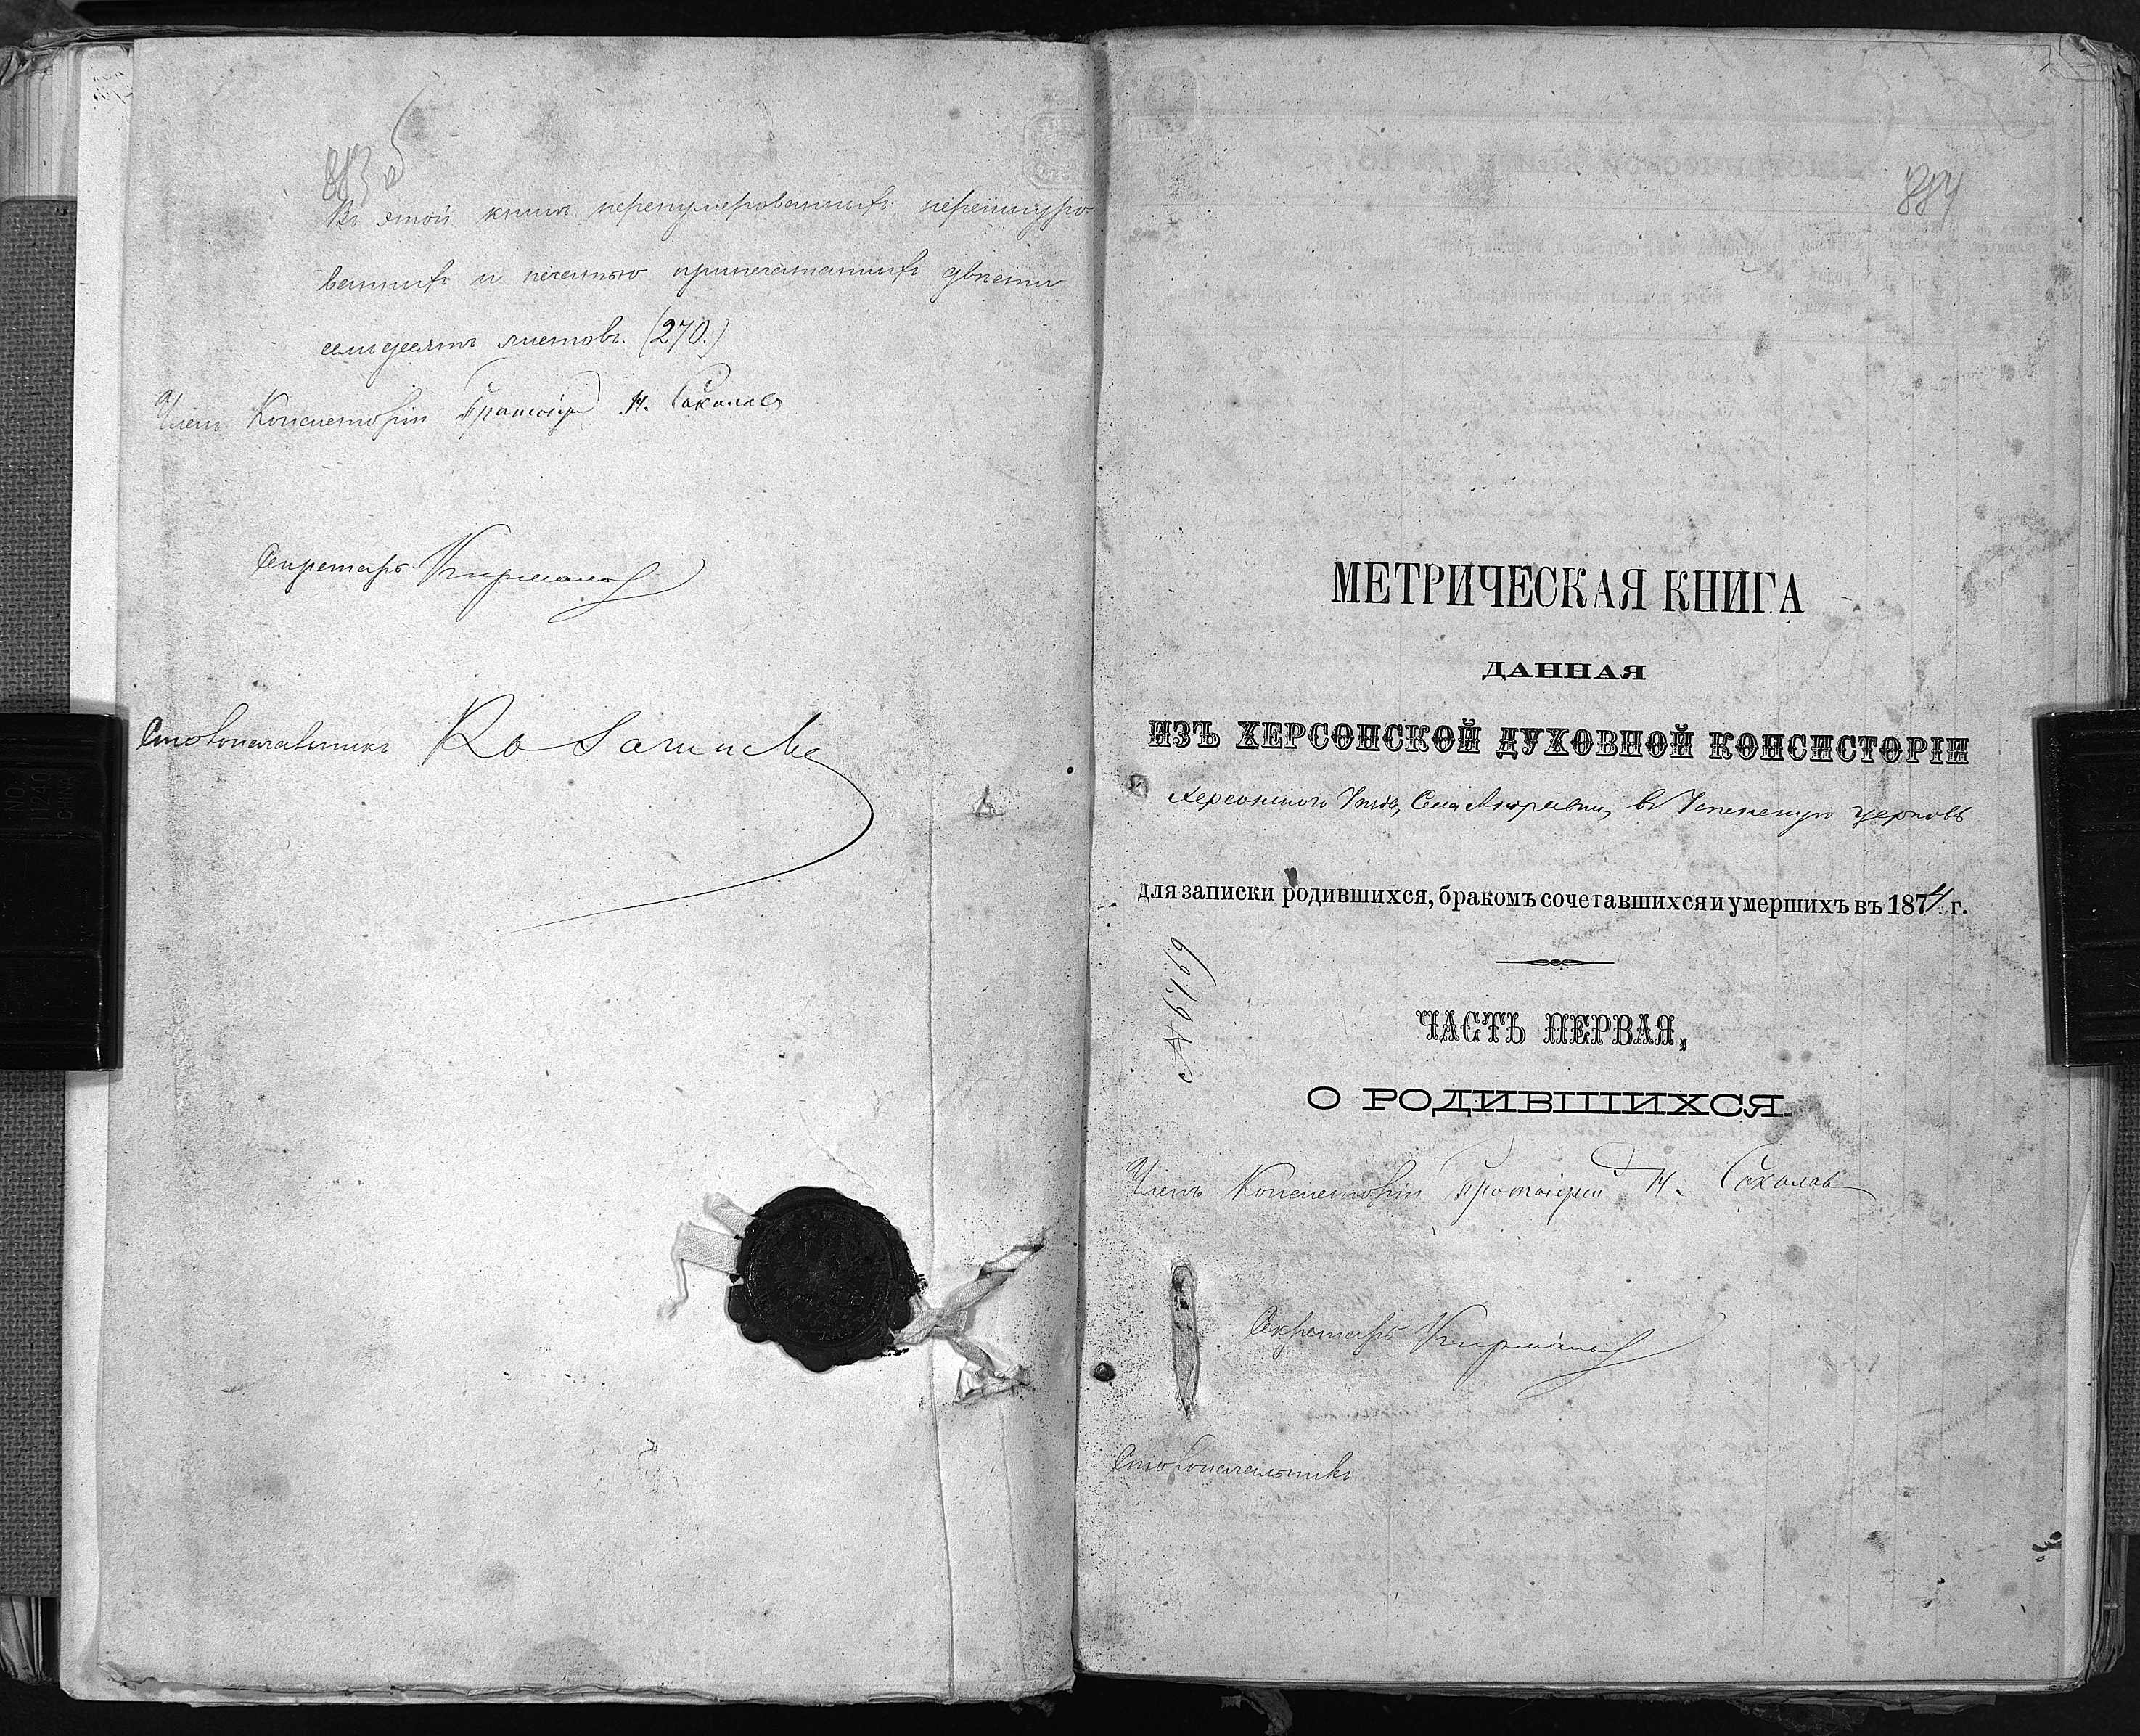 883 об
Въ этой книгѣ перенумерованныхъ перешнуро
ванныхъ и печатью припечатанныхъ двѣсти
семьдесятъ листовъ. (270.)
Членъ Консисторіи Протоіерей Н. Соколовъ
Секретарь
Столоначальникъ
884
МЕТРИЧЕСКАЯ КНИГА
ДАННАЯ
ИЗЪ ХЕРСОНСКОЙ ДУХОВНОЙ КОНСИСТОРІИ
Херсонскаго Уѣзда, Села въ Успенскую церковь
для записки родившихся, бракомъ сочетавшихся и умершихъ въ 1874 г.
ЧАСТЬ ПЕРВАЯ,
О РОДИВШИХСЯ.
Членъ Консисторіи Протоіерей Н. Соколовъ
Секретарь
Столоначальникъ